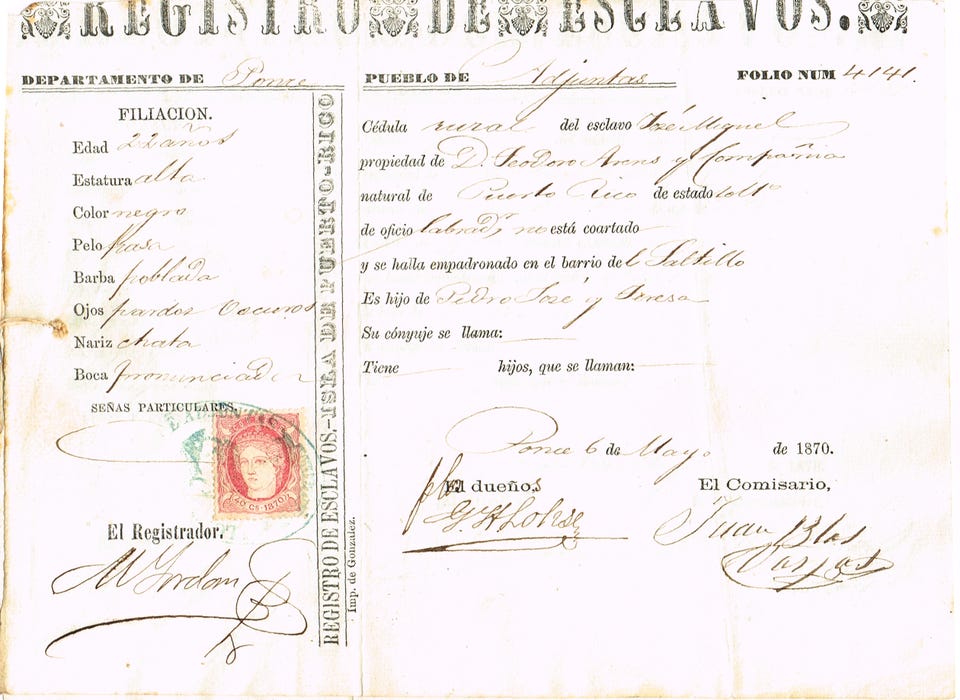 REGISTRO DE ESCLAVOS.
DEPARTAMENTO DE Ponce
PUEBLO DE Adjuntas
FOLIO NUM 4141.
FILIACION.
Edad 22 años
Estatura alta
Color negro
Pelo pasa
Barba poblada
Ojos pardos oscuros
Nariz chata
Boca pronunciada
SEÑAS PARTICULARES.
40 Cs. 1870
El Registrador.
REGISTRO DE ESCLAVOS.-ISLA DE PUERTO-RICO
Imp. de Gonzalez.
Cédula rural del esclavo José Miguel
propiedad de D. Teodoro Arens y Compañia
natural de Puerto Rico de estado solto
de oficio labrador, no está coartado
y se halla empadronado en el barrio del Saltillo
Es hijo de Pedro José y Teresa
Su cónyuje se llama:
Tiene hijos, que se llaman:
Ponce 6 de Mayo de 1870.
El dueño,
El Comisario,
Juan Blas